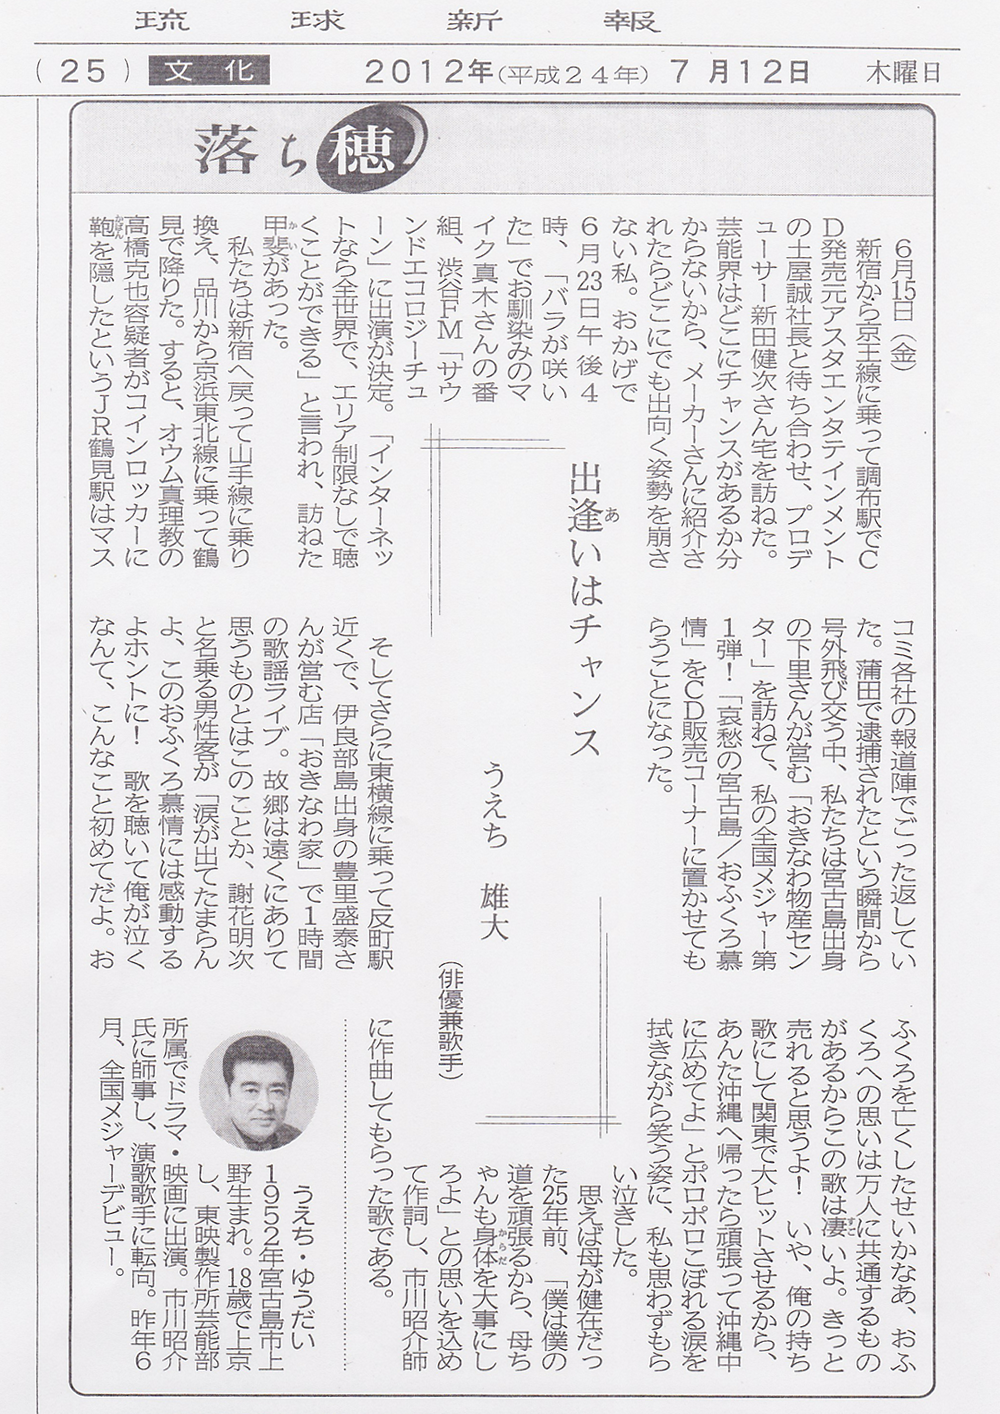 琉球新報
(25) 文化 2012年(平成24年) 7月12日 木曜日
落ち穂
出逢いはチャンス
あ
うえち 雄大
(俳優兼歌手)
6月15日(金)
新宿から京王線に乗って調布駅でC
D発売元アスタエンタテインメント
の土屋誠社長と待ち合わせ、プロデ
ューサー新田健次さん宅を訪ねた。
芸能界はどこにチャンスがあるか分
からないから、メーカーさんに紹介さ
れたらどこにでも出向く姿勢を崩さ
ない私。おかげで
6月23日午後4
時、「バラが咲い
た」でお馴染みのマ
イク真木さんの番
組、渋谷FM「サウ
ンドエコロジーチュ
ーン」に出演が決定。「インターネッ
トなら全世界で、エリア制限なしで聴
くことができる」と言われ、訪ねた
甲斐があった。
かい
私たちは新宿へ戻って山手線に乗り
換え、品川から京浜東北線に乗って鶴
見で降りた。すると、オウム真理教の
高橋克也容疑者がコインロッカーに
鞄を隠したというJR鶴見駅はマス
かばん
コミ各社の報道陣でごった返してい
た。蒲田で逮捕されたという瞬間から
号外飛び交う中、私たちは宮古島出身
の下里さんが営む「おきなわ物産セン
ター」を訪ねて、私の全国メジャー第
1弾!「哀愁の宮古島/おふくろ慕
情」をCD販売コーナーに置かせても
らうことになった。
そしてさらに東横線に乗って反町駅
近くで、伊良部島出身の豊里盛泰さ
んが営む店「おきなわ家」で1時間
の歌謡ライブ。故郷は遠くにありて
思うものとはこのことか、謝花明次
と名乗る男性客が「涙が出てたまらん
よ、このおふくろ慕情には感動する
よホントに! 歌を聴いて俺が泣く
なんて、こんなこと初めてだよ。お
ふくろを亡くしたせいかなあ、おふ
くろへの思いは万人に共通するもの
があるからこの歌は凄いよ。きっと
すご
売れると思うよ! いや、俺の持ち
歌にして関東で大ヒットさせるから、
あんた沖縄へ帰ったら頑張って沖縄中
に広めてよ」とポロポロこぼれる涙を
拭きながら笑う姿に、私も思わずもら
い泣きした。
思えば母が健在だっ
た25年前、「僕は僕の
道を頑張るから、母ち
ゃんも身体を大事にし
からだ
ろよ」との思いを込め
て作詞し、市川昭介師
に作曲してもらった歌である。
うえち・ゆうだい
1952年宮古島市上
野生まれ。18歳で上京
し、東映製作所芸能部
所属でドラマ・映画に出演。市川昭介
氏に師事し、演歌歌手に転向。昨年6
月、全国メジャーデビュー。